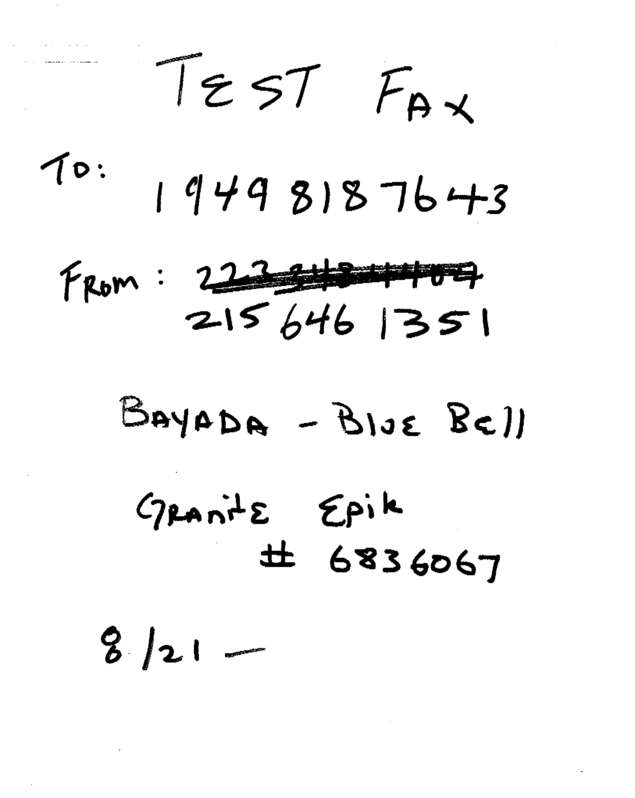 TEST FAX
TO:
1 949 818 7643
FROM: 223
215 646 1351
BAYADA - BLUE BELL
GRANITE EPIK
# 6836067
8/21 —